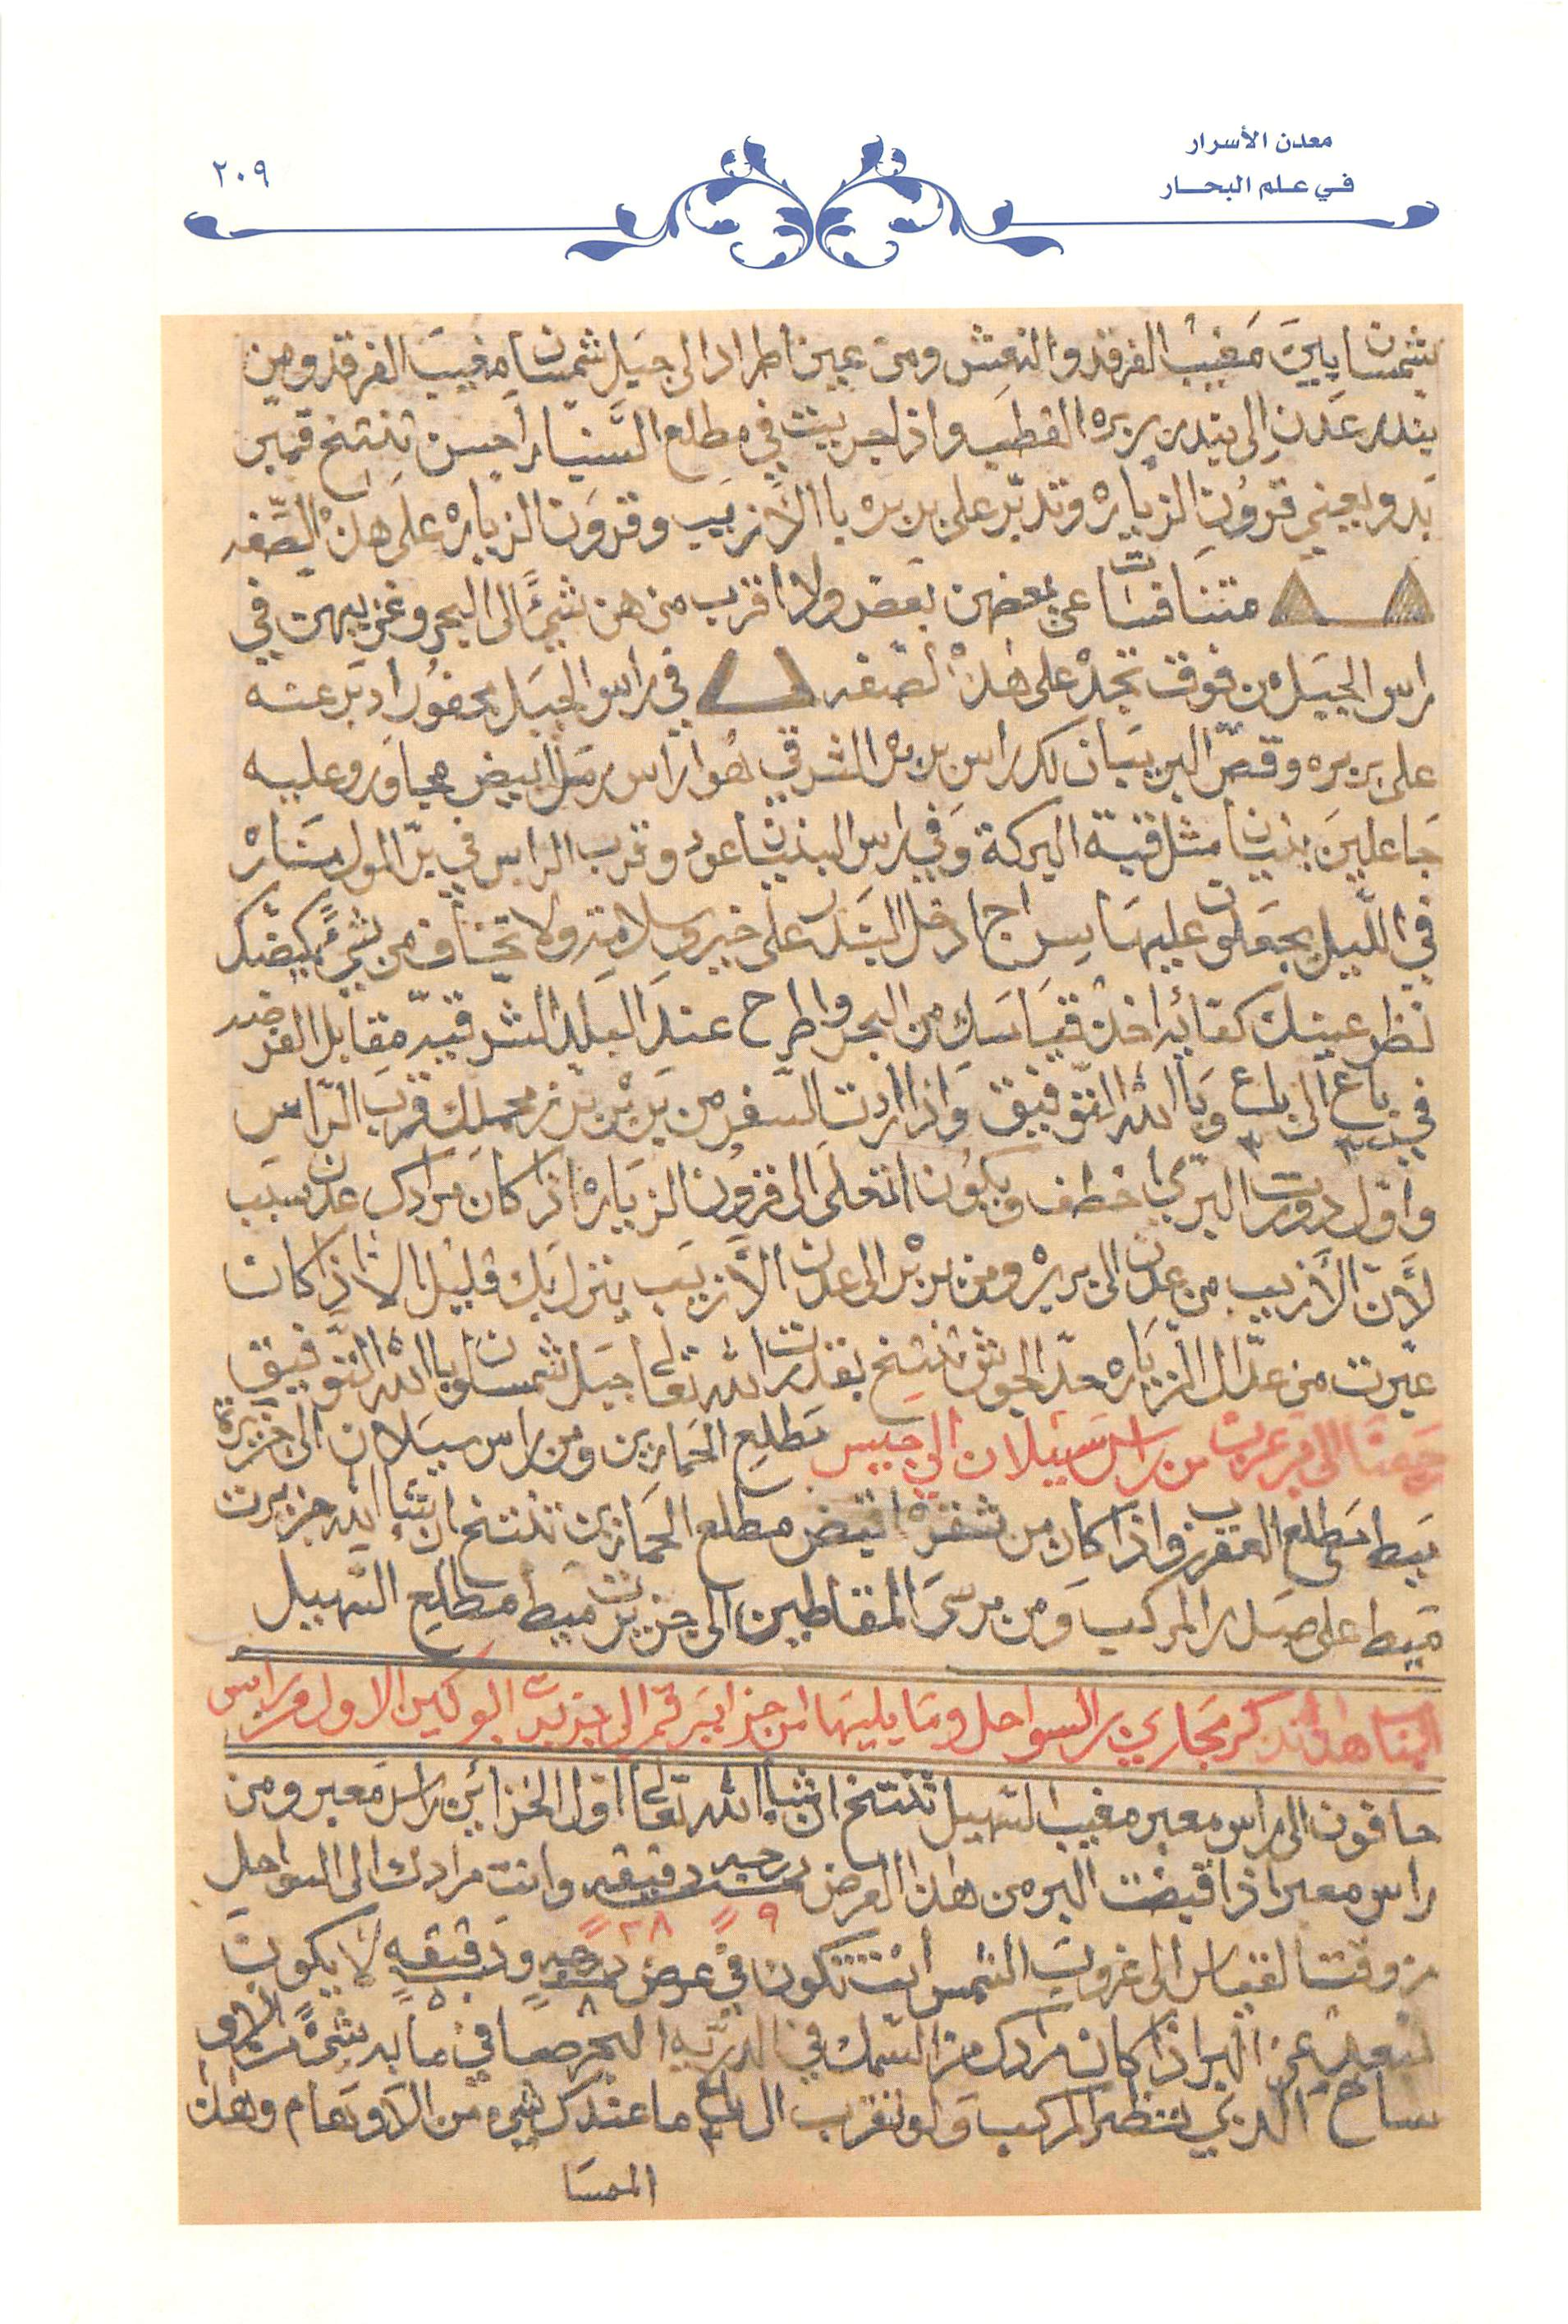 معدن الأسرار
في علم البحار
٢٠٩
بشمسان بين مغيب الفرقد والنعش ومن عين اطراد الى جبل شمسان مغيب الفرقد ومن
بندر عدن إلى بندر بربره القطب واذا جريت في مطلع السنبار احسن تنتخ قمبر
بدو يعني قرون الزياره وتدبر على بربره با الأزيب وقرون الزياره على هذه الصفه
متنافسات عن بعضهن بعض ولا اقرب من هن شيئ الى البحر وغزيبهن في
راس الجبل من فوق تجد على هذه الصفه في راس الجبل محفور ادبر عنه
على بربره وقص البر بيان لك راس بربره الشرقي هو راس رمل ابيض مجاور وعليه
جاعلين بنيان مثل قبة البركة وفي راس البنيان عود وقرب الراس في بر المول مناره
في الليل يجعلون عليها سراج ادخل البندر على خير وسلامة ولا تخاف من شيئ يضدك
نظر عينك كفايه اخذ قياسك من البحر واطرح عند البلد الشرقيه مقابل الفرضه
في باع ٣ الى باع ٣ وبا الله التوفيق واذا اردت السفر من بربره من محملك قرب الراس
واول دورت البري اخطف ويكون اتعلى الى قرون الزياره اذا كان مرادك عدن سبب
لأن الأزيب من عدن الى بربره ومن بربر الى عدن الأزيب ينزل بك قليل الا اذا كان
عبرت من عدال الزياره حد الجوش تنتخ بقدرت الله تعالى جبل شمسان وبا الله التوفيق
رجعنا الى بر عرب من راس سيلان الى جبيس مطلع الحمارين ومن راس سيلان الى جزيرة
ميط مطلع العقرب واذا كان من شقره اقبض مطلع الحمارين تنتخ ان شاء الله جزيرت
ميط على صدر المركب ومن مرسى المقاطين الى جزيرت ميط مطلع السهيل
الباب هذا نذكر مجاري بر السواحل وما يليها من جزاير قمر الى جزيرت البوكين الاول من راس
حافون الى راس معبر مغيب السهيل تنتخ ان شاء الله تعالى اول الخزائن راس معبر ومن
راس معبر اذا قبضت البر من هذا العرض درجه دقيقه وانت مرادك الى السواحل
٩ ٣٨
من وقت القياس الى غروب الشمس انت تكون في عرض درجه ودقيقه لا يكون
٨ ٥
تبعد عن البر اذا كان مرادك من السمك في البريه البحر صافي ما به شئ الا و
ساخ الذي تنظر المركب ولو تقرب ال باع ٣ ما عندك شيء من الاوهام وهذه
المسا